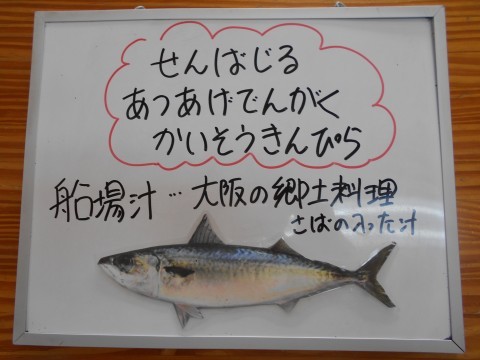 せんばじる
あつあげでんがく
かいそうきんぴら
船場汁…大阪の郷土料理
さばの入った汁